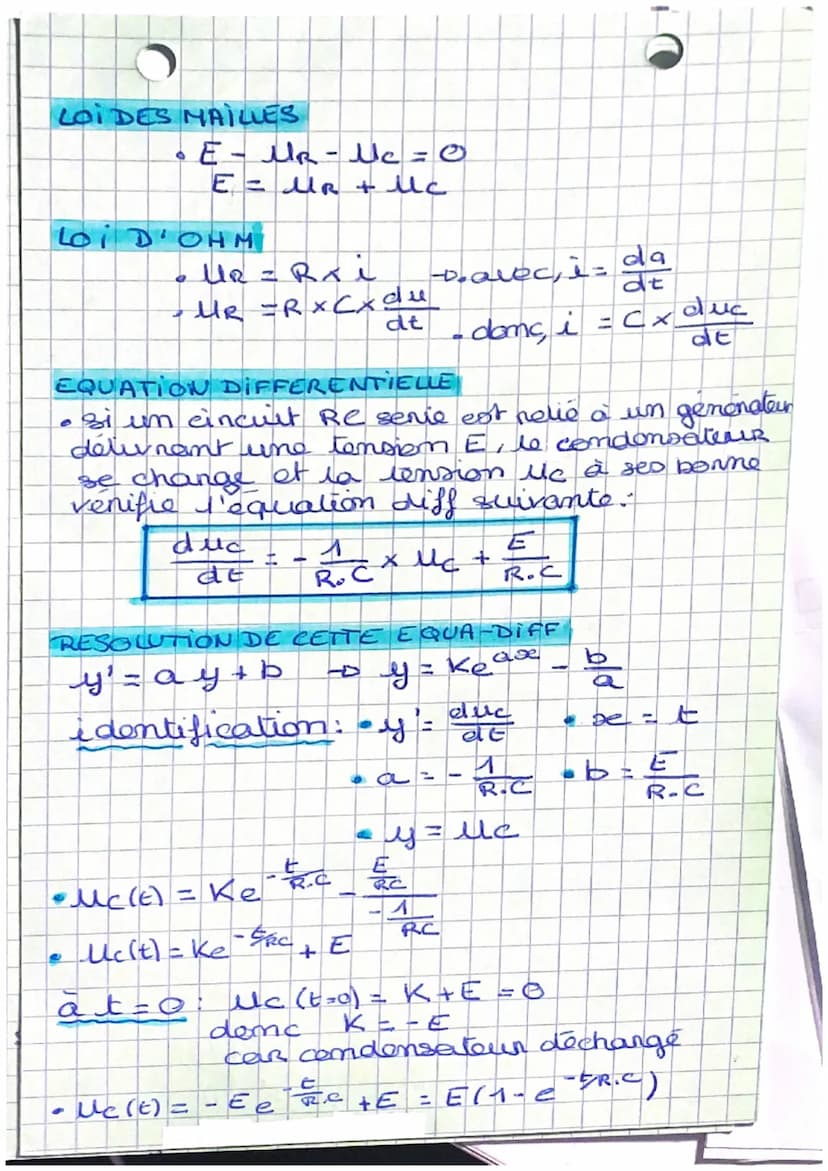 LOI DES MAILLES
• E - UR - Uc = 0
E = UR + Uc
LOI D'OHM
• UR = R × i → avec, i = dq/dt
• UR = R × C × du/dt • donc, i = C × duc/dt
EQUATION DIFFERENTIELLE
• Si un circuit RC serie est relié à un générateur
délivrant une tension E, le condensateur
se charge et la tension Uc à ses borne
vérifie l'équation diff suivante :
duc/dt = - 1/R.C × Uc + E/R.C
RESOLUTION DE CETTE EQUA-DIFF
y' = ay + b → y = Ke^ax - b/a
identification : • y' = duc/dt • x = t
• a = - 1/R.C • b = E/R.C
• y = Uc
• Uc(t) = Ke^(-t/R.C) - (E/RC)/(-1/RC)
• Uc(t) = Ke^(-t/RC) + E
à t=0 : Uc (t=0) = K + E = 0
donc K = - E
car condensateur déchargé
• Uc(t) = - E e^(-t/R.C) + E = E(1 - e^(-t/R.C))